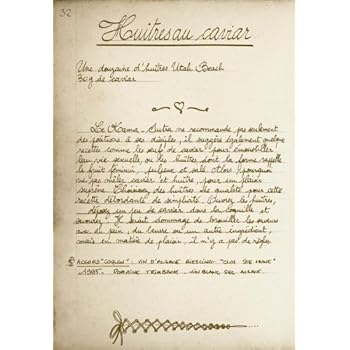 32
Huîtres au caviar
Une douzaine d'huîtres Utah Beach
30g de caviar
Le Kama-Sutra ne recommande pas seulement
des positions à ses disciples, il suggère également quelque
recettes comme les œufs de caviar pour émoustiller
leur vie sexuelle ou les huîtres dont la forme rappelle
le fruit féminin, juteuse et salé. Alors pourquoi
ne pas mêler caviar et huître pour un plaisir
suprême. Choisissez des huîtres de qualité pour cette
recette débordante de simplicité. Ouvrez les huîtres,
déposez un peu de caviar dans la coquille et
savourez! Il serait dommage de brouiller les saveurs
avec du pain, du beurre ou un autre ingrédient,
mais en matière de plaisir, il n'y a pas de règles
ACCORD "COQUIN": VIN D'ALSACE RIESLING "CLOS STE HUNE"
1985. DOMAINE TRIMBACH. VIN BLANC SEC ALSACE.